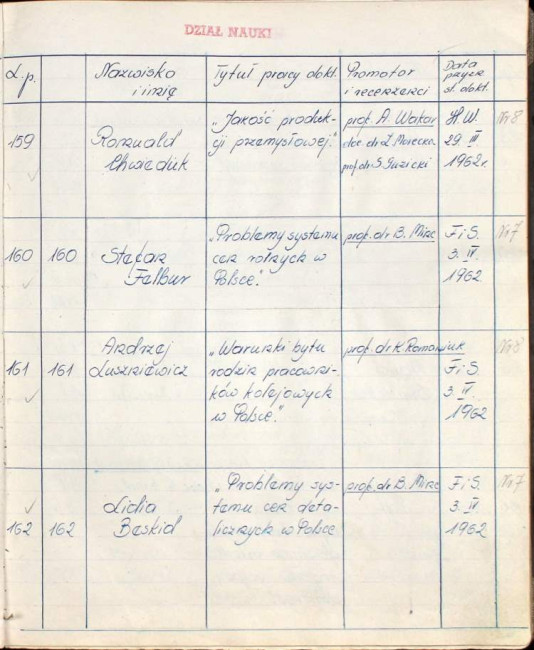 DZIAŁ NAUKI
L.p.
Nazwisko
i imię
Tytuł pracy dokt.
Promotor
i recenzenci
Data
przyzn.
st. dokt.
159
Romuald
Chwieduk
„Jakość produk-
cji przemysłowej."
prof. A. Wakar
doc. dr Z. Morecka
prof. dr S. Guzicki
H.W.
29. III
1962 r.
Nr 8
160
160
Stefan
Felbur
„Problemy systemu
cen rolnych w
Polsce".
prof. dr B. Minc
F i S.
3. IV.
1962.
Nr 7
161
161
Andrzej
Luszniewicz
„Warunki bytu
rodzin pracowni-
ków kolejowych
w Polsce."
prof. dr K. Romaniuk
F i S.
3. IV.
1962
Nr 8
162
162
Lidia
Beskid
„Problemy sys-
temu cen deta-
licznych w Polsce
prof. dr B. Minc
F i S.
3. IV.
1962
Nr 7